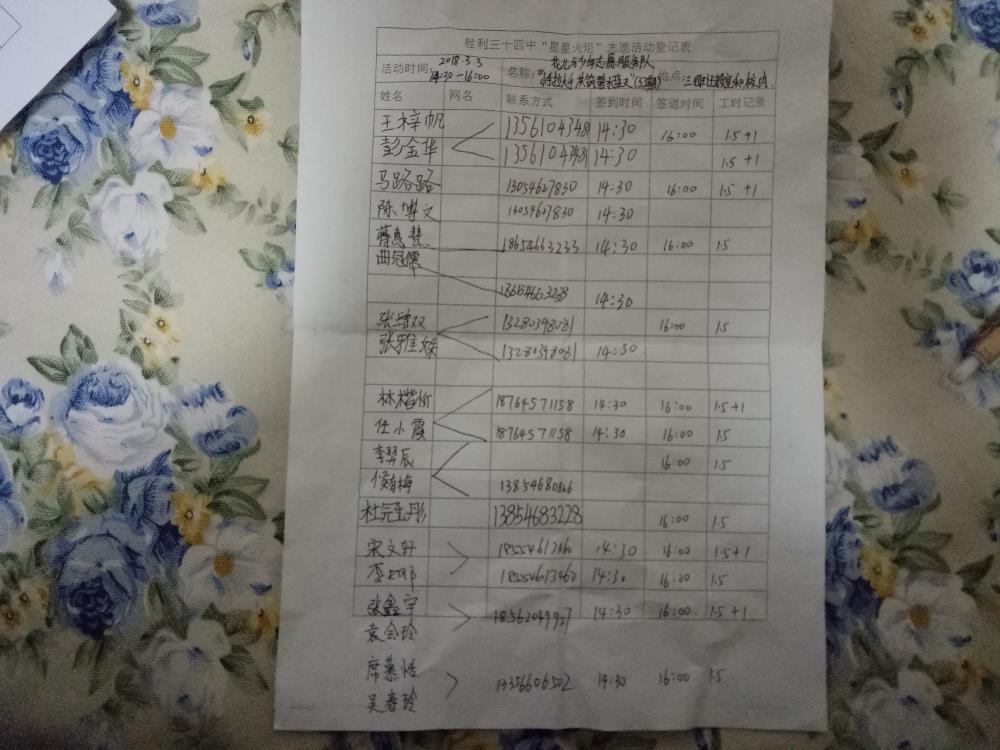 胜利三十四中“星星火炬”志愿活动登记表
活动时间: 2018.3.3 14:30-16:00 名称: 花儿与少年志愿服务队 地点:
姓名 网名 联系方式 签到时间 签退时间 工时记录
王梓帆 1356104348 14:30 16:00 1.5+1
彭金华 1356104348 14:30 1.5+1
马路路 13054627830 14:30 16:00 1.5+1
陈博文 13054627830 14:30
蒋惠慧 18654663233 14:30 16:00 1.5
曲冠儒
14:30
13280398081 16:00 1.5
13280398081 14:30
林楷忻 18764571158 14:30 16:00 1.5+1
任小霞 18764571158 14:30 16:00 1.5
李羿辰 16:00 1.5
13854680866
杜冠彤 13854683228 16:00 1.5
宋文轩 14:30 16:00 1.5+1
14:30 16:00 1.5
张鑫宇 18562049927 14:30 16:00 1.5+1
袁会玲
席慕恬 13356606502 14:30 16:00 1.5
吴春玲